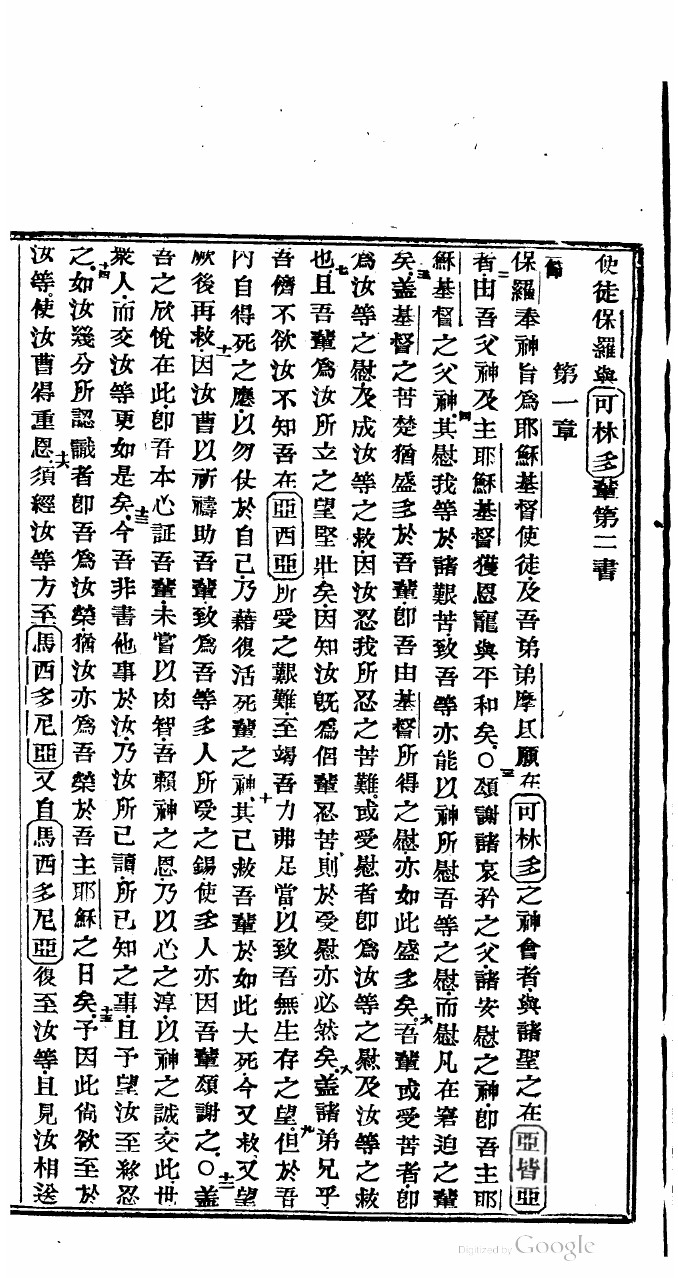 使徒保羅與可林多輩第二書
第一章
一節保羅奉神旨為耶穌基督使徒及吾弟弟摩氐願在可林多之神會者與諸聖之在亞皆亞
者二由吾父神及主耶穌基督獲恩寵與平和矣〇三頌謝諸哀矜之父諸安慰之神即吾主耶
穌基督之父神四其慰我等於諸艱苦致吾等亦能以神所慰吾等之慰而慰凡在窘迫之輩
矣五盖基督之苦楚猶盛多於吾輩即吾由基督所得之慰亦如此盛多矣六吾輩或受苦者即
為汝等之慰及成汝等之救因汝忍我所忍之苦難或受慰者即為汝等之慰及汝等之救
也七且吾輩為汝所立之望堅壯矣因知汝既為侶輩忍苦則於受慰亦必然矣八盖諸弟兄乎
吾儕不欲汝不知吾在亞西亞所受之艱難至竭吾力弗足當以致吾無生存之望九但於吾
內自得死之應以勿仗於自己乃藉復活死輩之神十其已救吾輩於如此大死今又救又望
厥後再救十一因汝曹以祈禱助吾輩致為吾等多人所受之錫使多人亦因吾輩頌謝之〇十二盖
吾之欣悅在此即吾本心証吾輩未嘗以肉智吾賴神之恩乃以心之淳以神之誠交此世
衆人而交汝等更如是矣十三今吾非書他事於汝乃汝所已讀所已知之事且予望汝至終忍
之十四如汝幾分所認識者即吾為汝榮猶汝亦為吾榮於吾主耶穌之日矣十五予因此尚欲至於
汝等使汝曹得重恩十六須經汝等方至馬西多尼亞又自馬西多尼亞復至汝等且見汝相送
Digitized by Google